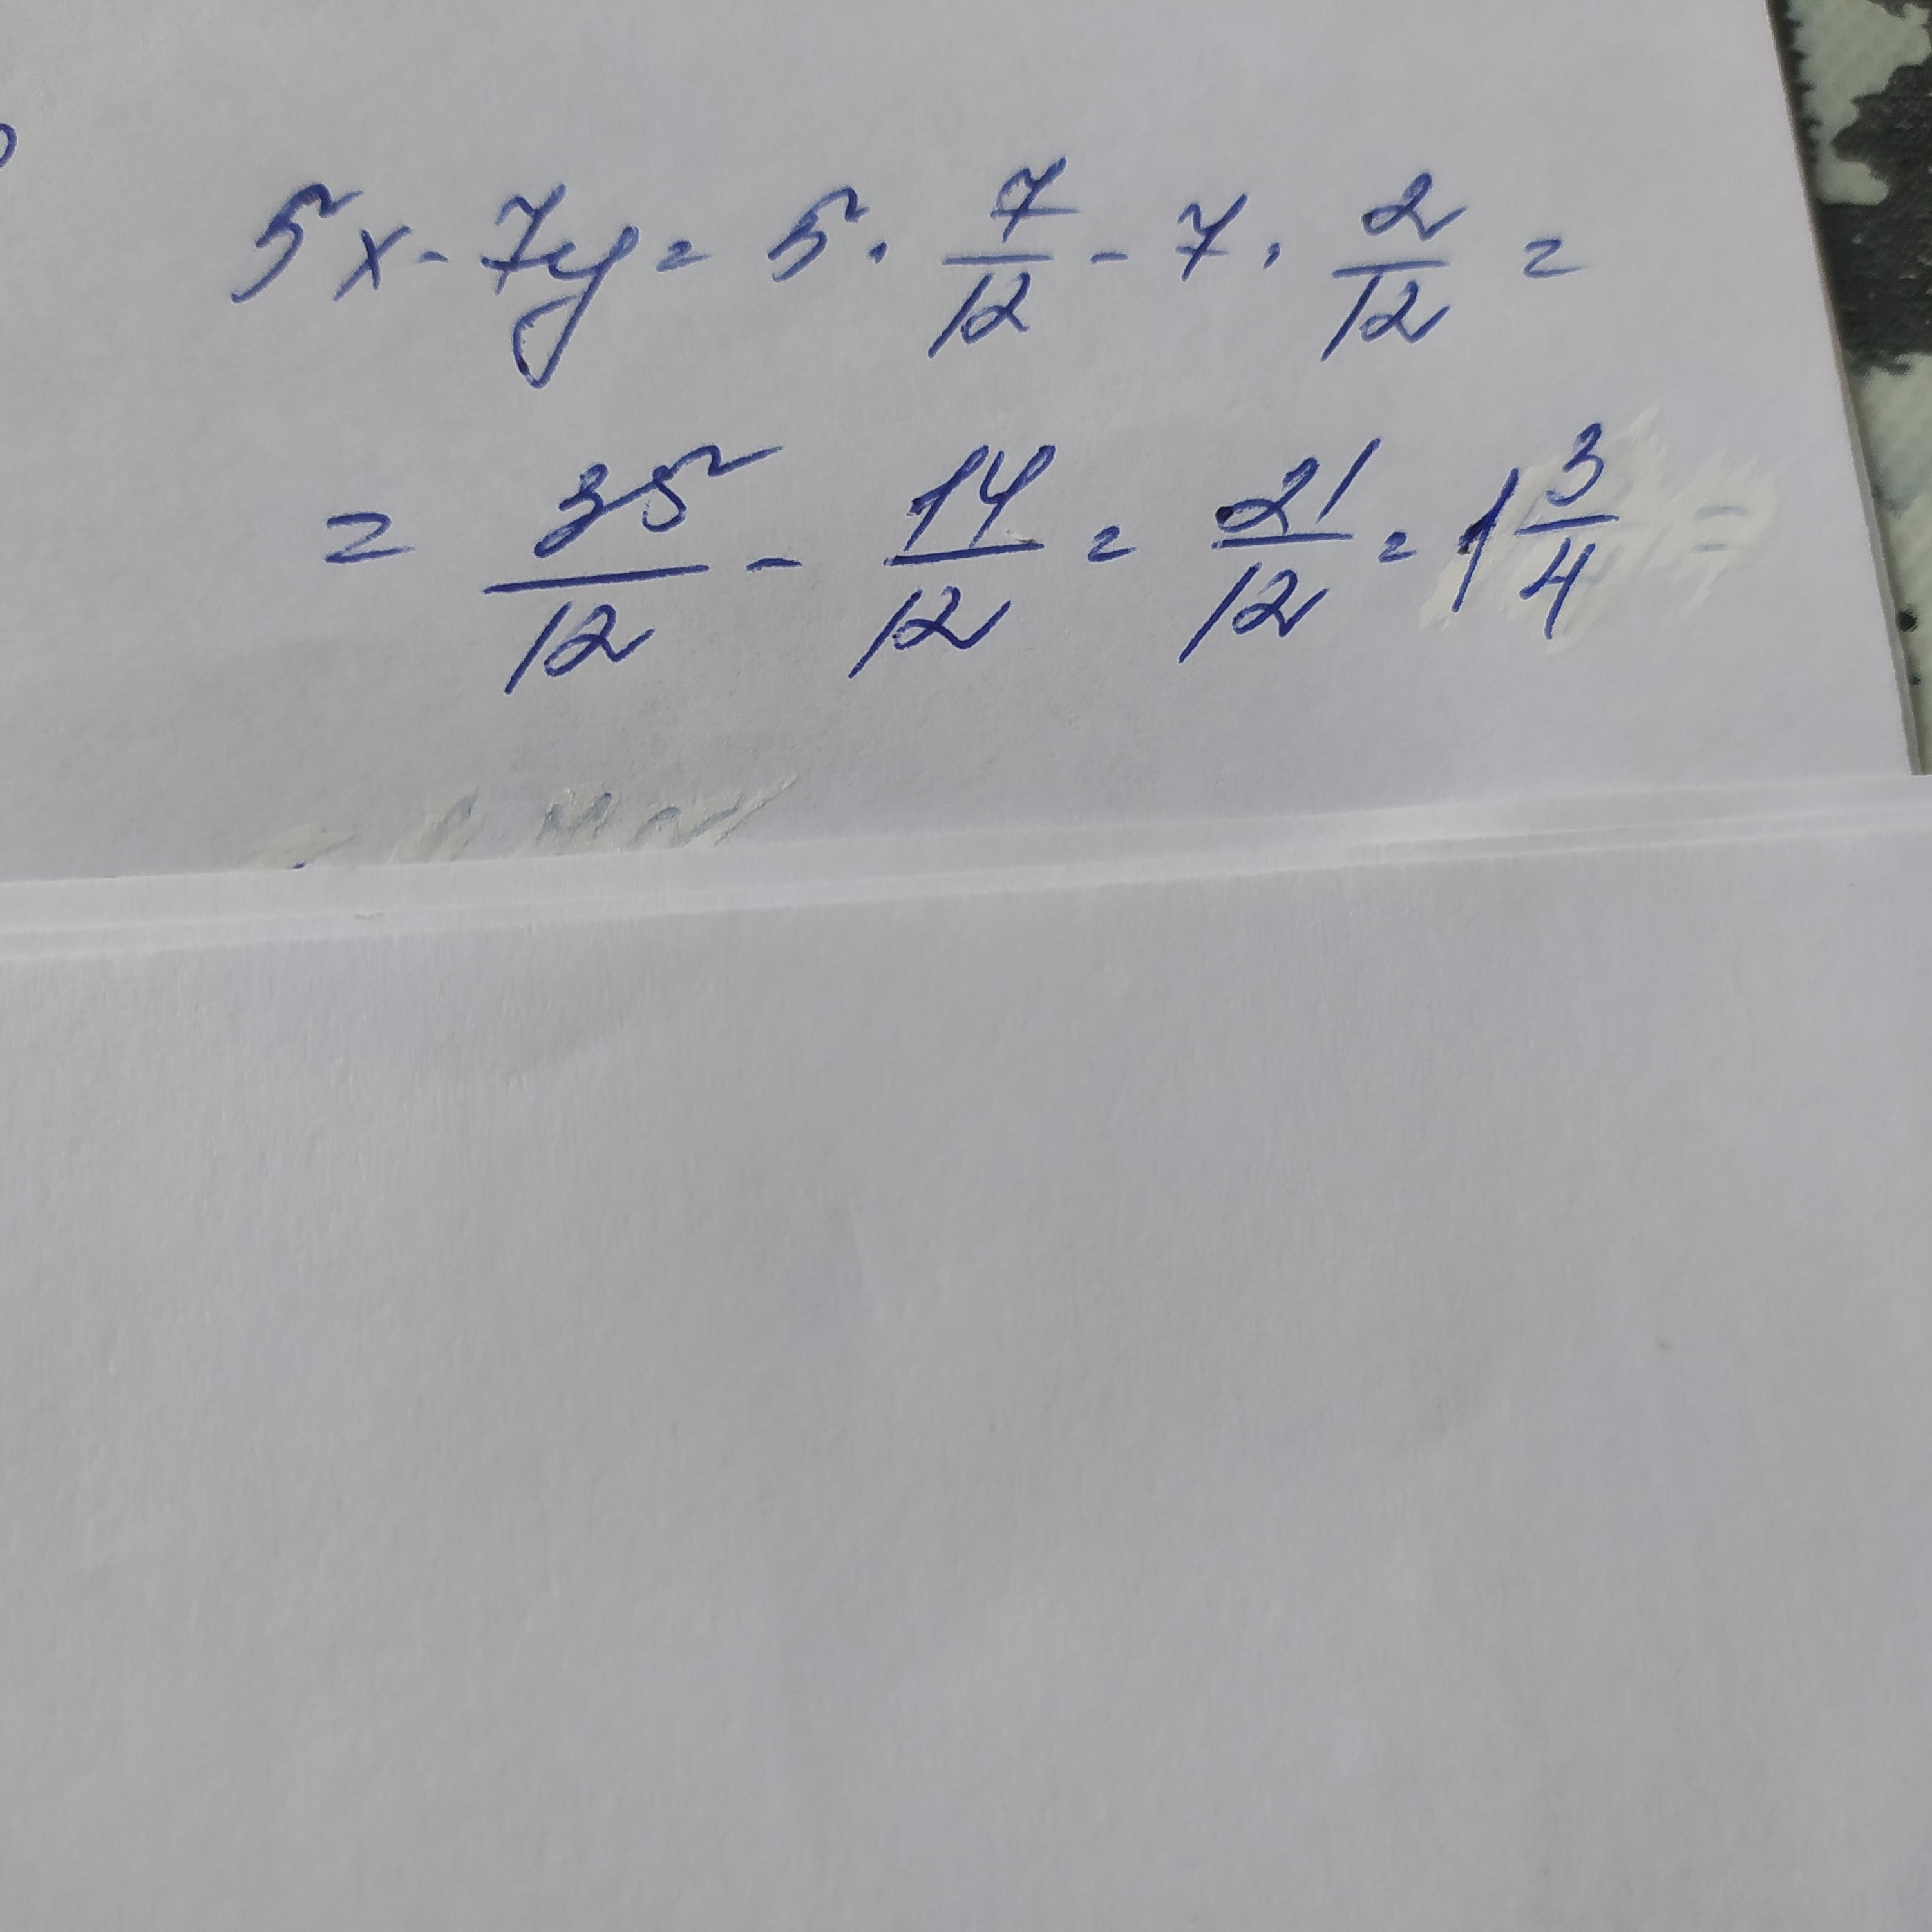 5x - 7y = 5 · 7/12 - 7 · 2/12 =
= 35/12 - 14/12 = 21/12 = 1 3/4 =